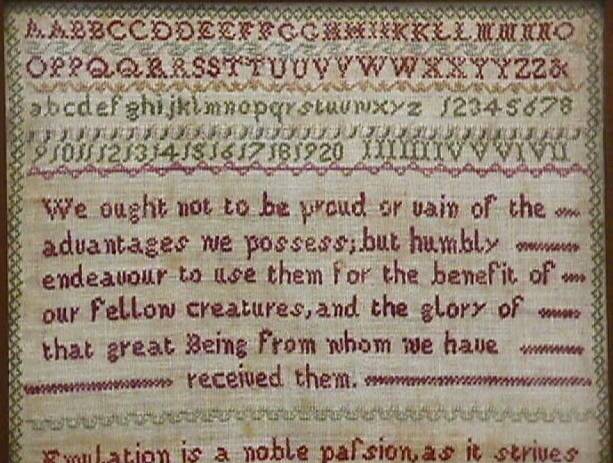 AABBCCDDEEFFGGHHIIKKLLMMNNO
OPPQQRRSSTTUUVVWWXXYYZZ&
abcdefghijklmnopqrstuvwxyz 12345678
91011121314151617181920 IIIIIIIVVVIVII
We ought not to be proud or vain of the
advantages we possess; but humbly
endeavour to use them for the benefit of
our fellow creatures, and the glory of
that great Being from whom we have
received them.
Emulation is a noble paſsion, as it strives